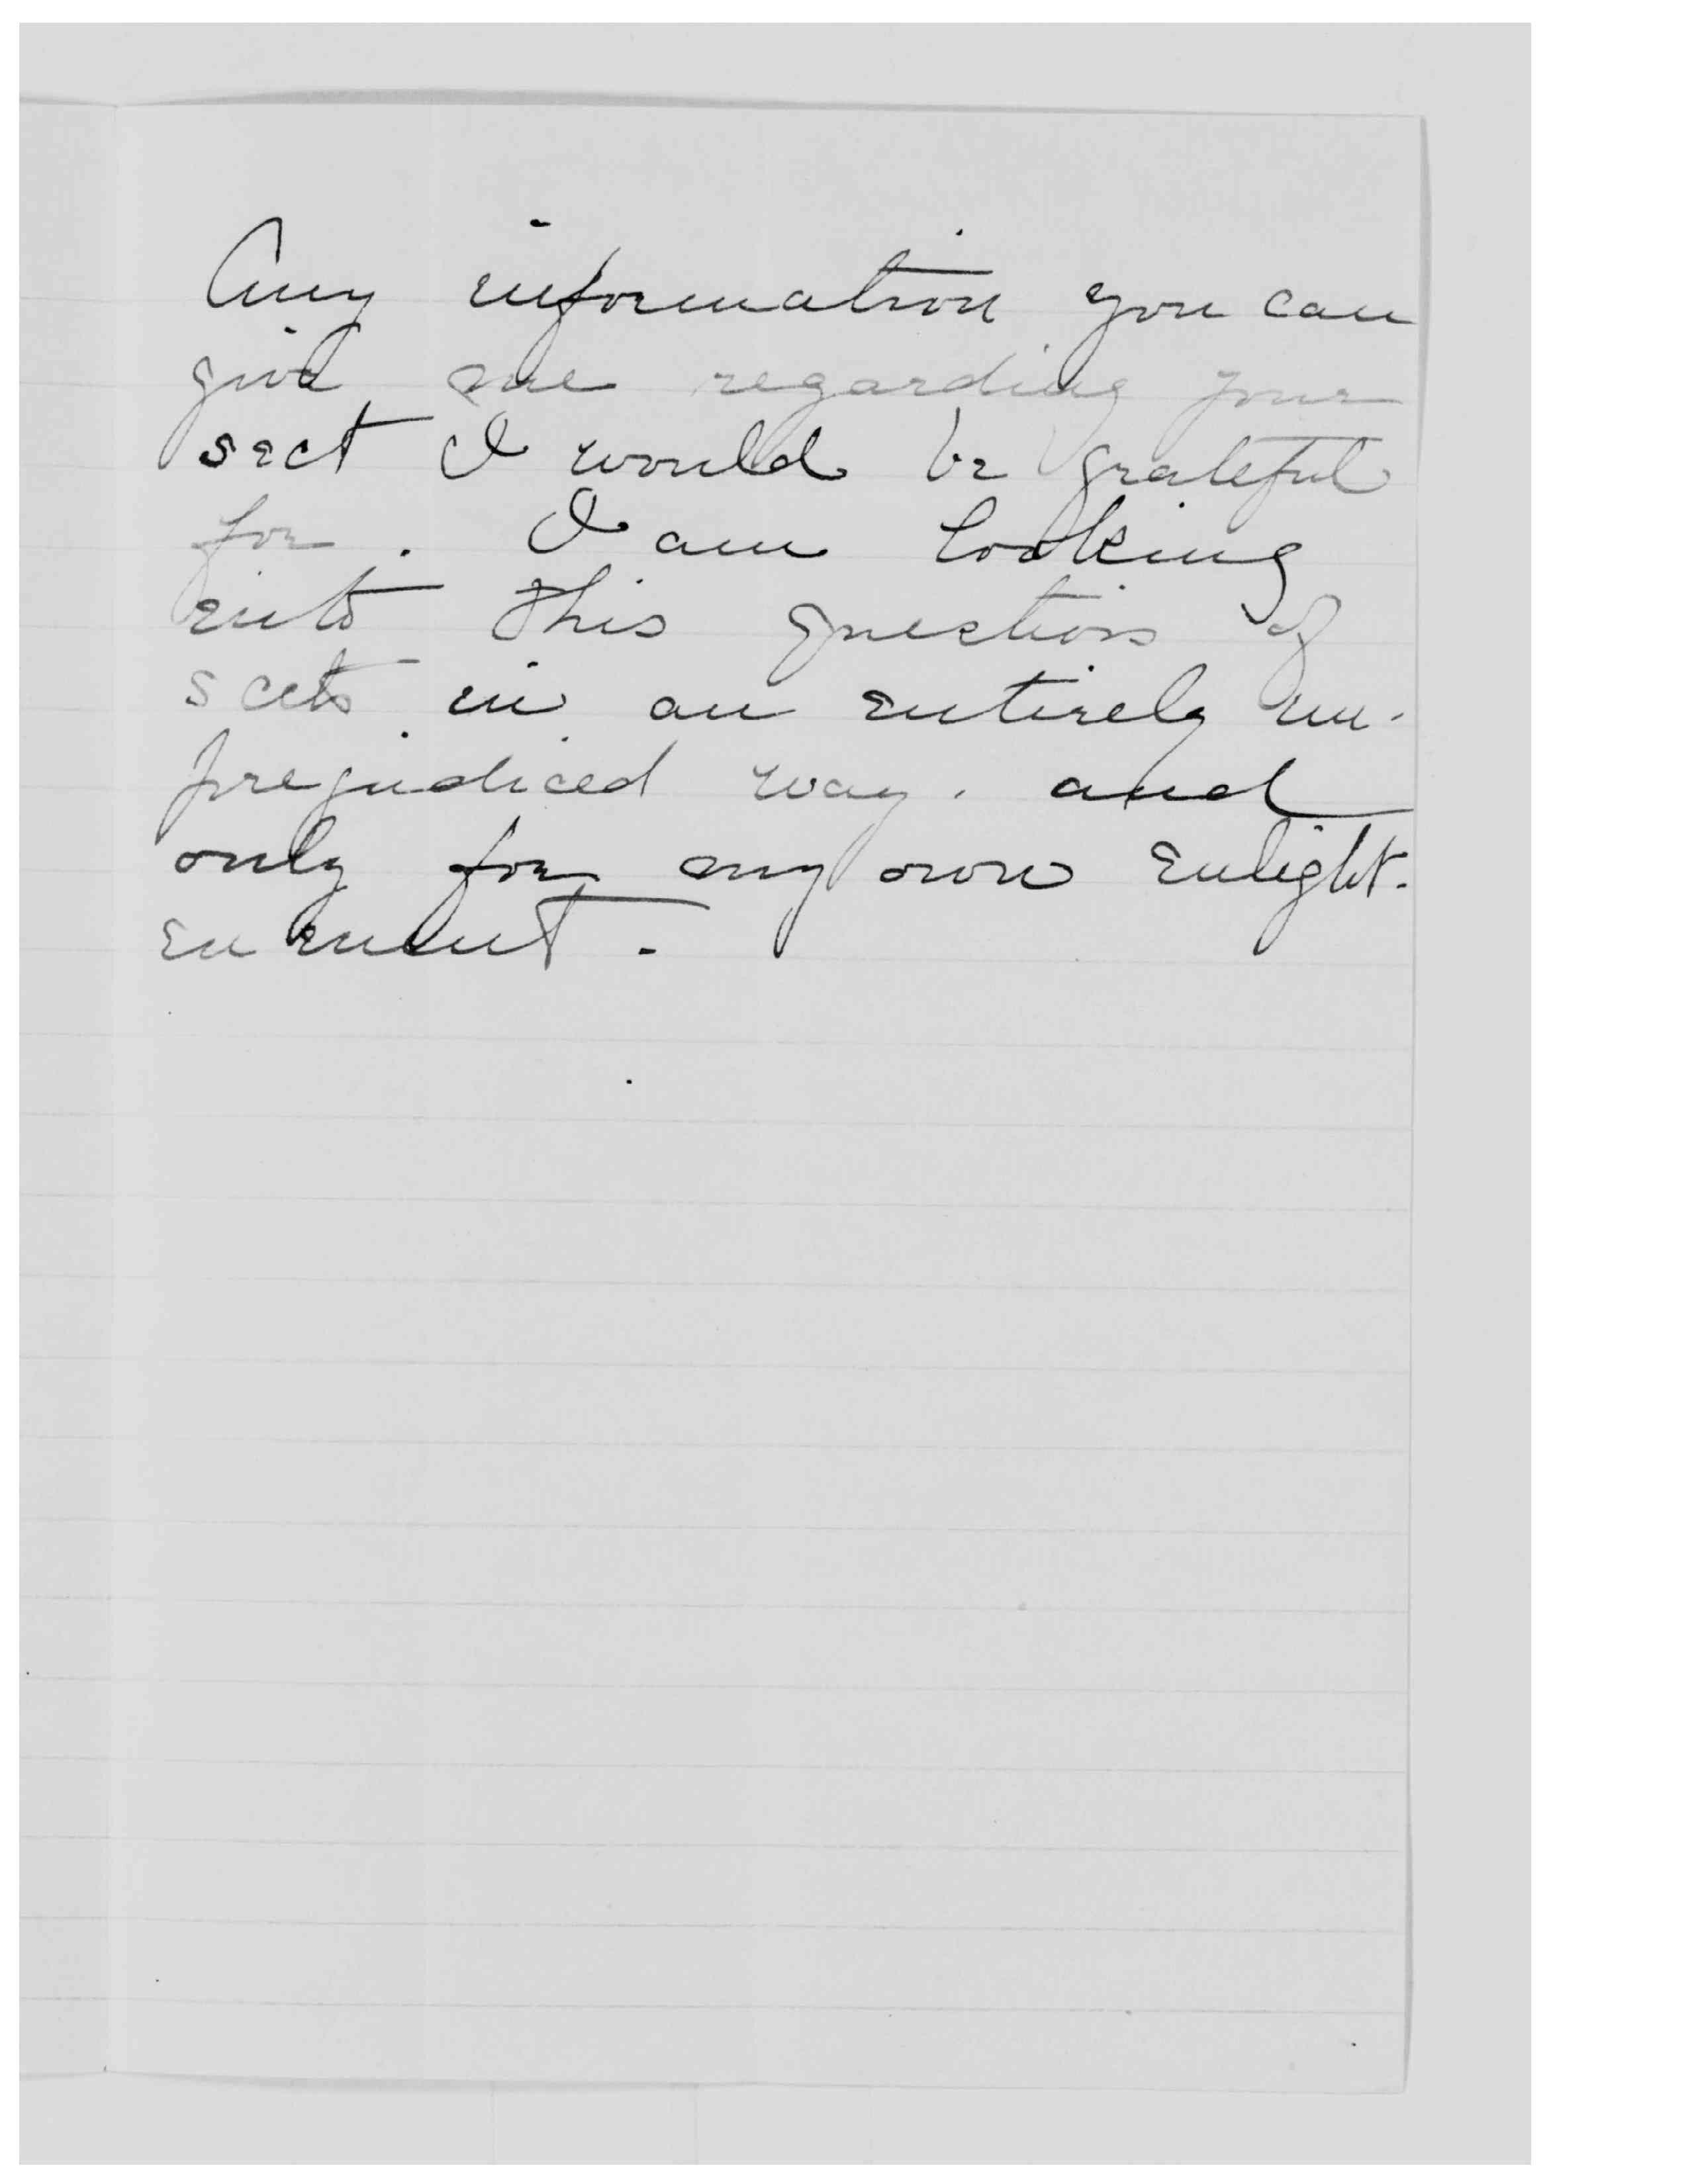 Any information you can
give me regarding your
sect I would be grateful
for. I am looking
into this question of
sects in an entirely un-
prejudiced way. and
only for my own enlight-
enment.